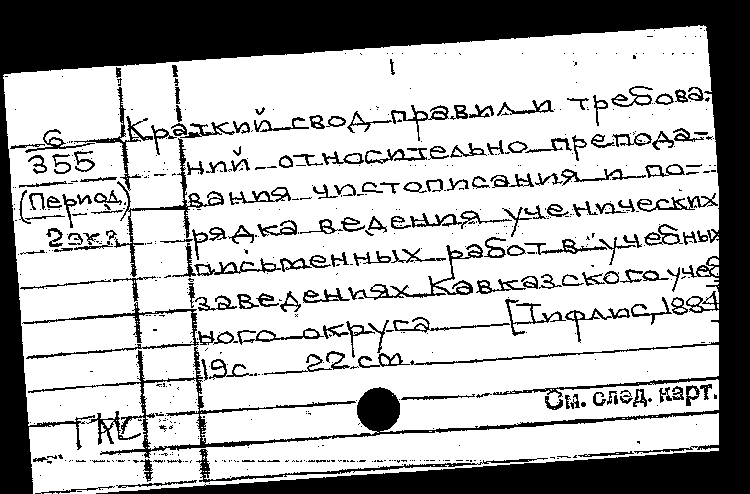 6
355
(Период.)
2 экз
Краткий свод правил и требова-
ний относительно препода-
вания чистописания и по-
рядка ведения ученических
письменных работ в "учебных
заведениях Кавказского учеб
ного округа [Тифлис, 1884
19с 22 cm.
См. след. карт.